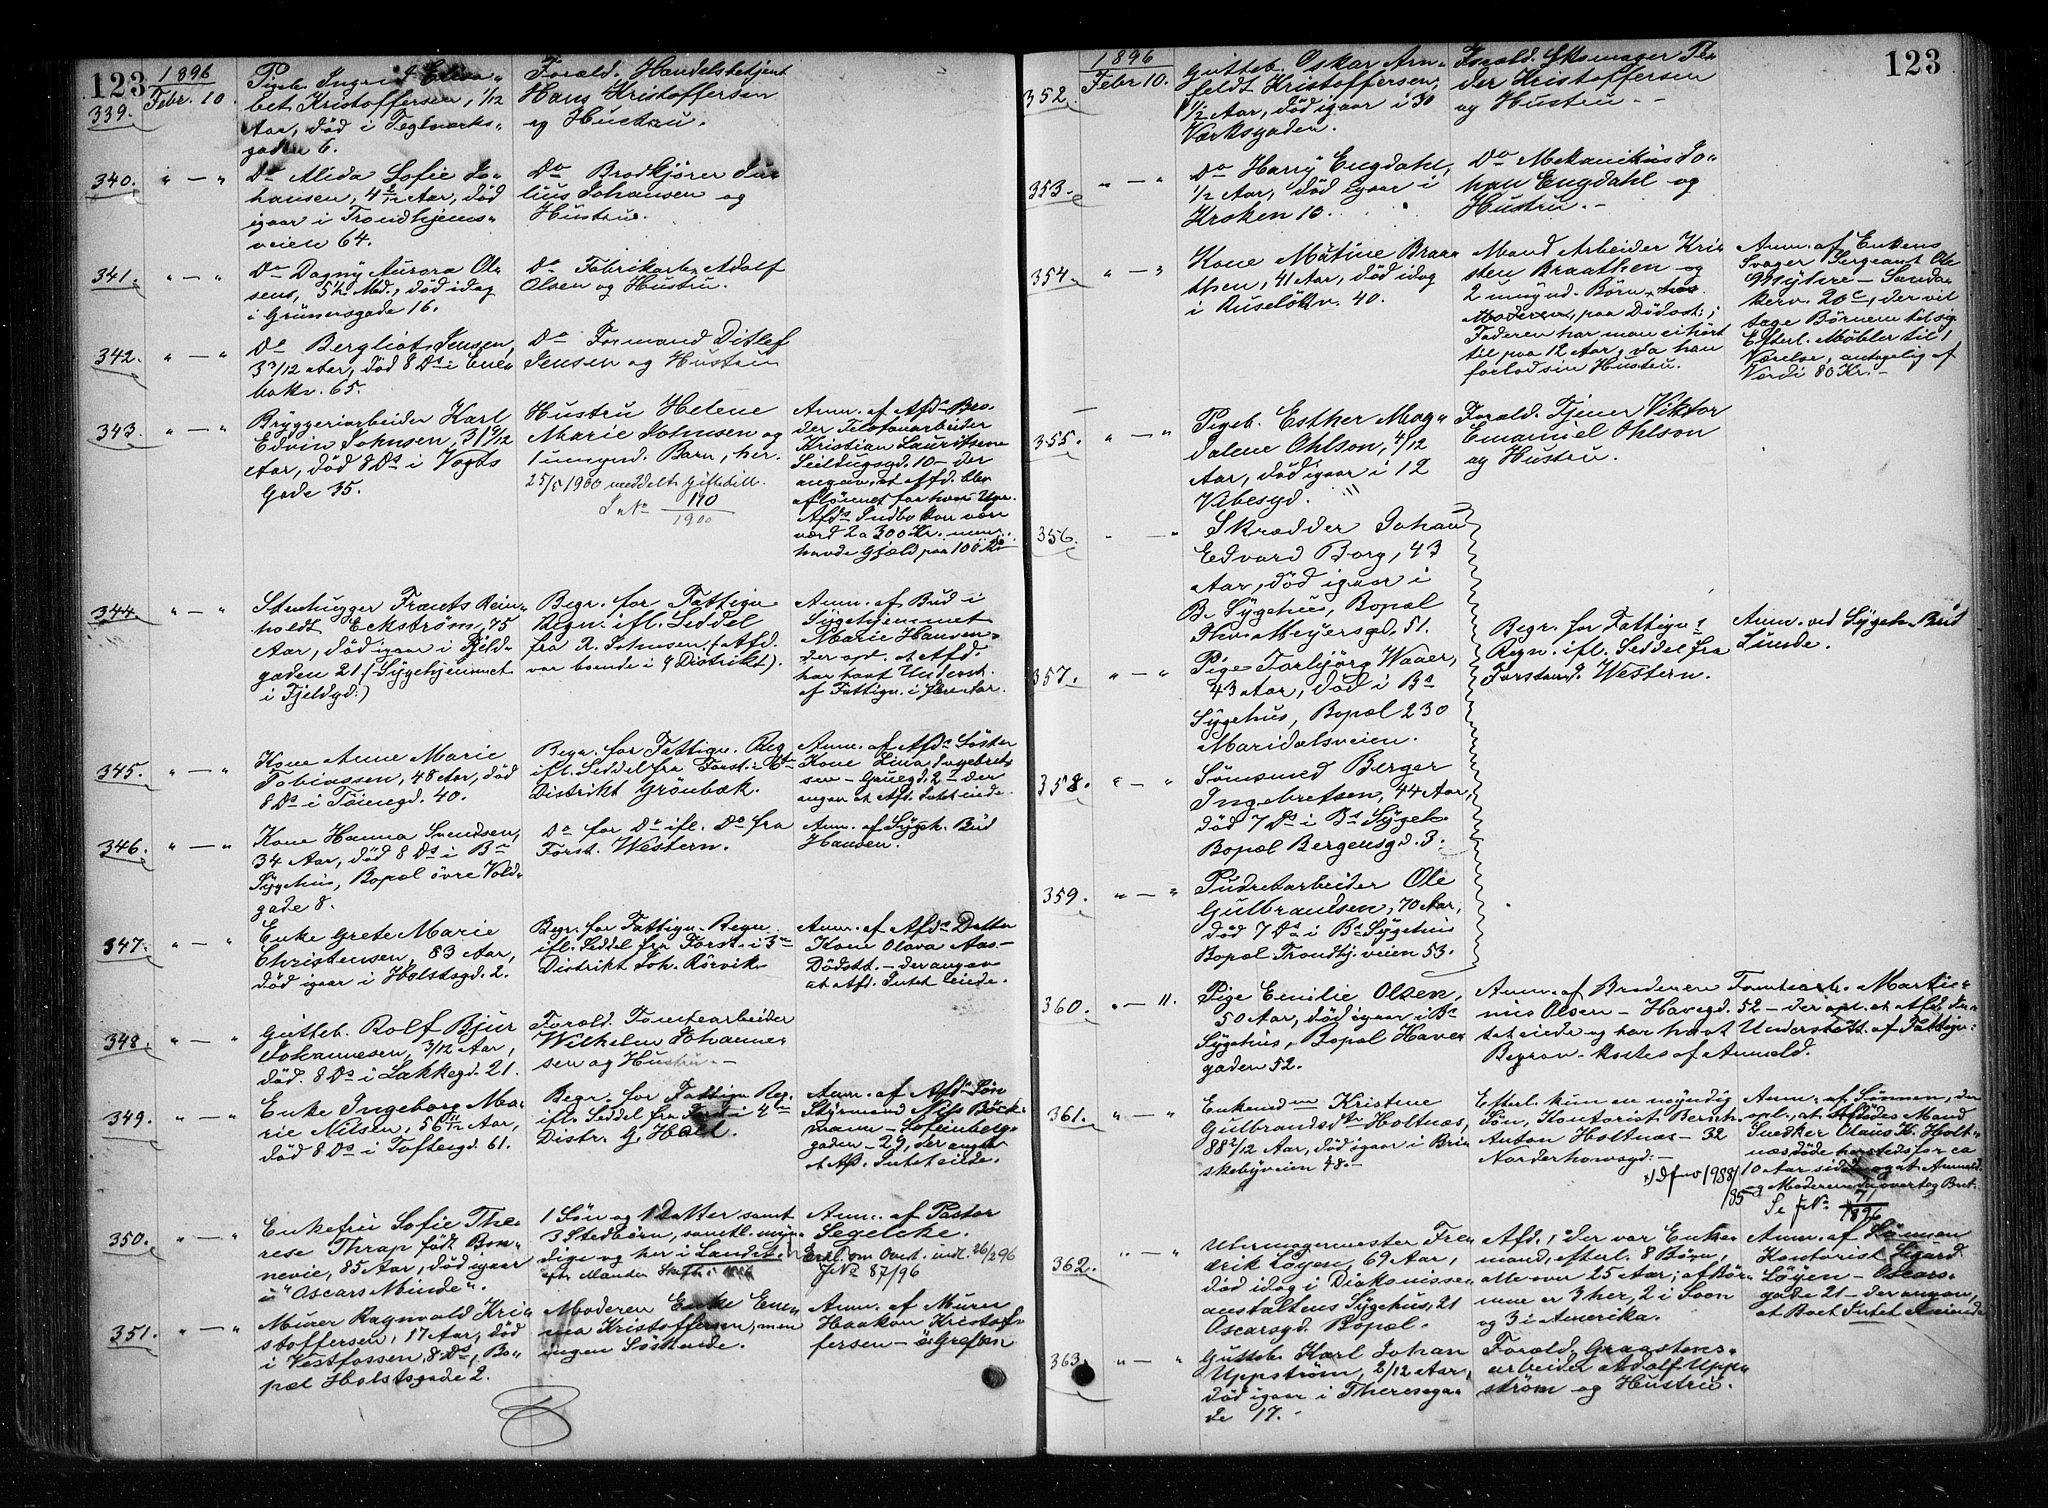 123
1896
339.
Febr. 10.
Pigeb. Ingrid Elisa-
bet Kristoffersen, 1/12
Aar, død i Teglverks-
gaden 6.
Forald. Handelsbetjent
Hans Kristoffersen
og Hustru.
340.
" — "
Do Alida Sofie Jo-
hansen, 4 2/12 Aar, død
igaar i Trondhjems-
veien 64.
Do Brødkjører Ju-
lius Johansen og
Hustru.
341.
" — "
Do Dagny Aurora Ol-
sens, 5½ Md., død idag
i Grünersgade 16.
Do Fabrikarb. Adolf
Olsen og Hustru.
342.
" — "
Do Bergliot Jensen,
3 3/12 Aar, død 8 Ds i Ene-
bakv. 65.
Do Formand Ditlef
Jensen og Hustru
343.
" — "
Bryggeriarbeider Karl
Edvin Johnsen, 31 9/12
Aar, død 8 Ds i Vogts
Gade 35.
Hustru Helene
Marie Johnsen og
1 umynd. Barn, her.
25/5 1900 meddelt giftetill.
J No 170
1900
Anm. af Afds Bro-
der Telefonarbeider
Kristian Lauritsen
Seildugsgd. 10 — der
angav, at Afd. blev
aflønnet for hver Uge.
Afds Indbo kan være
værd 2 a 300 Kr. men
havde Gjæld paa 100 Kr
344.
" — "
Stenhugger Frants Rein-
holdt Eckstrøm, 75
Aar, død igaar i Fjeld-
gaden 21. (Sygehjemmet
i Fjeldgd.)
Begr. for Fattigv.
Regn. ifl. Seddel
fra R. Johnsen, (Afd.
var boende i 9 Distrikt).
Anm. af Bud i
Sygehjemmet
Marie Hansen
der opl. at Afd.
har havt Underst.
af Fattigv. i flere Aar.
345.
" — "
Kone Anne Marie
Tobiassen, 48 Aar, død
8 Ds i Tøiengd. 40.
Begr. for Fattigv. Reg
ifl. Seddel fra Forst. i 6te
Distrikt Grønbæk.
Anm. af Afds Søster
Kone Lina Ingebret-
sen — Gruegd. 2 — der
angav at Afd. Intet eiede.
346.
" — "
Kone Hanna Svendsen,
34 Aar, død 8 Ds i Bs
Sygehus, Bopæl øvre Vold-
gade 8.
Do for Do ifl. Do fra
Forst. Western.
Anm. af Sygeh. Bud
Hansen.
347.
" — "
Enke Grete Marie
Christensen, 83 Aar,
død igaar i Holstsgd. 2.
Begr. for Fattigv. Regn.
ifl. Seddel fra Forst. i 3die
Distrikt Joh. Rørvik
Anm. af Afds Datter
Kone Olava Aas —
Dødsst. — der angav
at Afd. Intet eiede.
348.
" — "
Gutteb. Rolf Bjur
Johannesen, 3/12 Aar,
død. 8 Ds i Lakkegd. 21.
Forald. Tomtearbeider
Wilhelm Johanne-
sen og Hustru —
349.
" — "
Enke Ingeborg Ma-
rie Nilsen, 56 11/12 Aar,
død 8 Ds i Toftesgd. 61.
Begr. for Fattigv. Reg.
ifl. Seddel fra Forst. i 4de
Distr. G. Hald.
Anm. af Afds Søn
Styrmand Nils Bøck-
mann — Sofienberg-
gaden — 29, der angav
at Afd. Intet eiede.
350.
" — "
Enkefru Sofie The-
rese Thrap født Bon-
nevie, 85 Aar, død igaar
i "Oscars Minde".
1 Søn og 1 Datter samt
3 Stedbørn, samtl. myn-
dige og her i Landet.
Anm. af Pastor
Segelcke.
Erkl. om Overt. indl. 26/2 96
J No 87/96
351.
" — "
Murer Ragnvald Kri-
stoffersen, 17 Aar, død
i Vestfossen, 8 Ds, Bo-
pæl Holstsgade 2.
Moderen Enke
Kristoffersen, men
ingen Søskende.
Anm. af Murer
Haakon Kristof-
fersen — ø. Grefsen
123
1896
352.
Febr. 10.
Gutteb. Oskar Arn-
feldt Kristoffersen,
1 1/2 Aar, død igaar i 30
Værksgaden.
Forald. Skomager Pe-
der Kristoffersen
og Hustru. —
353.
" — "
Do Harry Engdahl,
1/2 Aar, død igaar i
Kroken 13.
Do Mekanikus Jo-
han Engdahl og
Hustru. —
354.
" — "
Kone Matine Braa-
then, 41 Aar, død idag
i Ruseløkv. 40.
Mand Arbeider Kri-
sten Braathen — og
2 umynd. Børn, hos
Moderen, paa Dødsst.;
Faderen har man ei hørt
til paa 12 Aar, da han
forlod sin Hustru.
Anm. af Enkens
Svoger Sergeant Ole
Myhre — Sanda-
kerv. 20c, der vil
tage Børnene til sig
Efterl. Møbler til 1
Værelse, antagelig af
Værdi 80 Kr. —
355.
" — "
Pigeb. Esther Mag-
dalene Ohlson, 4/12
Aar, død igaar i 12
Vibesgd.
Forald. Tjener Viktor
Emanuel Ohlson
og Hustru.
356.
" — "
Skrædder Johan
Edvard Borg, 43
Aar, død igaar i
B. Sygehus, Bopæl
Thv. Meyersgd. 51.
357.
" — "
Pige Torbjørg Waaer,
43 Aar, død i Bs
Sygehus, Bopæl 230
Maridalsveien.
Begr. for Fattigv.s
Regn. ifl. Seddel fra
Forstand. Western.
Anm. ved Sygeh. Bud
Lunde.
358.
" — "
Sømsmed Berger
Ingebretsen, 44 Aar,
død 7 Ds i Bs Sygeh.
Bopæl Bergensgd. 3.
359.
" — "
Pudretarbeider Ole
Gulbrandsen, 70 Aar,
død 7 Ds i Bs Sygehus
Bopæl Trondhj. veien 53.
360.
" — "
Pige Emilie Olsen,
50 Aar, død igaar i Bs
Sygehus, Bopæl Have-
gaden 52.
Anm. af Broderen Tomtearb. Martin-
nius Olsen — Havegd. 52 — der opl. at Afd. In-
tet eiede og har havt Understøtt. af Fattigv.
Begrav. kostes af Anmeld.
361.
" — "
Enkemdm Kristine
Gulbrandsdtr Holtnæs,
88 2/12 Aar, død igaar i Bri-
skebyveien 48. —
Efterl. kun en myndig
Søn, Kontorist Bernh.
Anton Holtnæs — 32
Norderhovsgd. —
Anm. af Sønnen, der
opl., at Afdødes Mand
Snedker Olaus K. Holt-
næs døde hersteds for ca
10 Aar siden og at Anmeld.
og Moderen da overtog Boet.
Se J No 71
1896
362.
" — "
Uhrmagermester Fre-
derik Løyen, 69 Aar,
død idag i Diakonisse-
anstaltens Sygehus, 21
Oscarsgd. Bopæl.
Afd., der var Enke-
mand, efterl. 8 Børn,
alle over 25 Aar; af Bør-
nene er 3 her, 2 i Soon
og 3 i Amerika.
Anm. af Sønnen
Kontorist Sigurd
Løyen — Oscars-
gade 21 — der angav,
at Boet Intet eiede
363.
" — "
Gutteb. Karl Johan
Uppstrøm, 2/12 Aar,
død igaar i Theresega-
de 17. —
Forald. Graastens-
arbeider Adolf Upp-
strøm og Hustru.